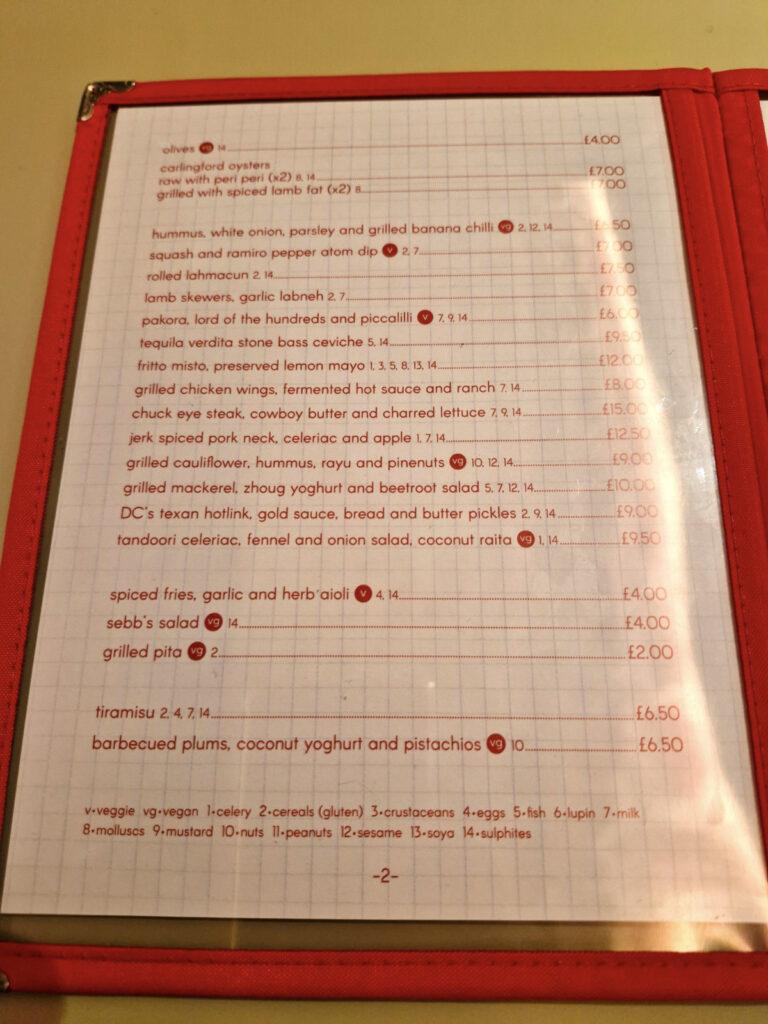 olives vg 14 £4.00
carlingford oysters
raw with peri peri (x2) 8, 14 £7.00
grilled with spiced lamb fat (x2) 8 £7.00
hummus, white onion, parsley and grilled banana chilli vg 2, 12, 14 £6.50
squash and ramiro pepper atom dip v 2, 7 £7.00
rolled lahmacun 2, 14 £7.50
lamb skewers, garlic labneh 2, 7 £7.00
pakora, lord of the hundreds and piccalilli v 7, 9, 14 £6.00
tequila verdita stone bass ceviche 5, 14 £9.50
fritto misto, preserved lemon mayo 1, 3, 5, 8, 13, 14 £12.00
grilled chicken wings, fermented hot sauce and ranch 7, 14 £8.00
chuck eye steak, cowboy butter and charred lettuce 7, 9, 14 £15.00
jerk spiced pork neck, celeriac and apple 1, 7, 14 £12.50
grilled cauliflower, hummus, rayu and pinenuts vg 10, 12, 14 £9.00
grilled mackerel, zhoug yoghurt and beetroot salad 5, 7, 12, 14 £10.00
DC's texan hotlink, gold sauce, bread and butter pickles 2, 9, 14 £9.00
tandoori celeriac, fennel and onion salad, coconut raita vg 1, 14 £9.50
spiced fries, garlic and herb aioli v 4, 14 £4.00
sebb's salad vg 14 £4.00
grilled pita vg 2 £2.00
tiramisu 2, 4, 7, 14 £6.50
barbecued plums, coconut yoghurt and pistachios vg 10 £6.50
v•veggie vg•vegan 1•celery 2•cereals (gluten) 3•crustaceans 4•eggs 5•fish 6•lupin 7•milk
8•molluscs 9•mustard 10•nuts 11•peanuts 12•sesame 13•soya 14•sulphites
-2-